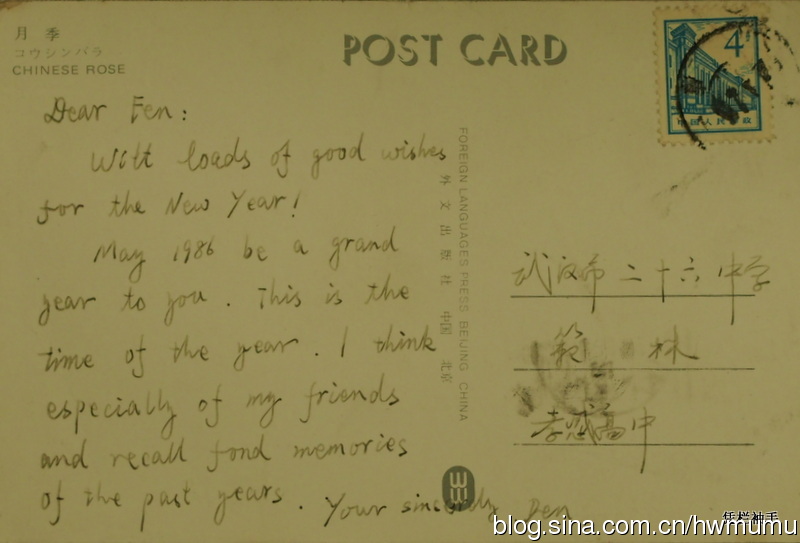 月季
コウシンバラ
CHINESE ROSE
POST CARD
4
中国人民邮政
Dear Fen:
Witt loads of good wishes
for the New Year!
May 1986 be a grand
year to you. This is the
time of the year. I think
especially of my friends
and recall fond memories
of the past years. Your sincerely Den
FOREIGN LANGUAGES PRESS BEIJING CHINA
外文出版社 中国 北京
武汉市二十六中学
範 林
孝感高中
凭栏袖手
blog.sina.com.cn/hwmumu